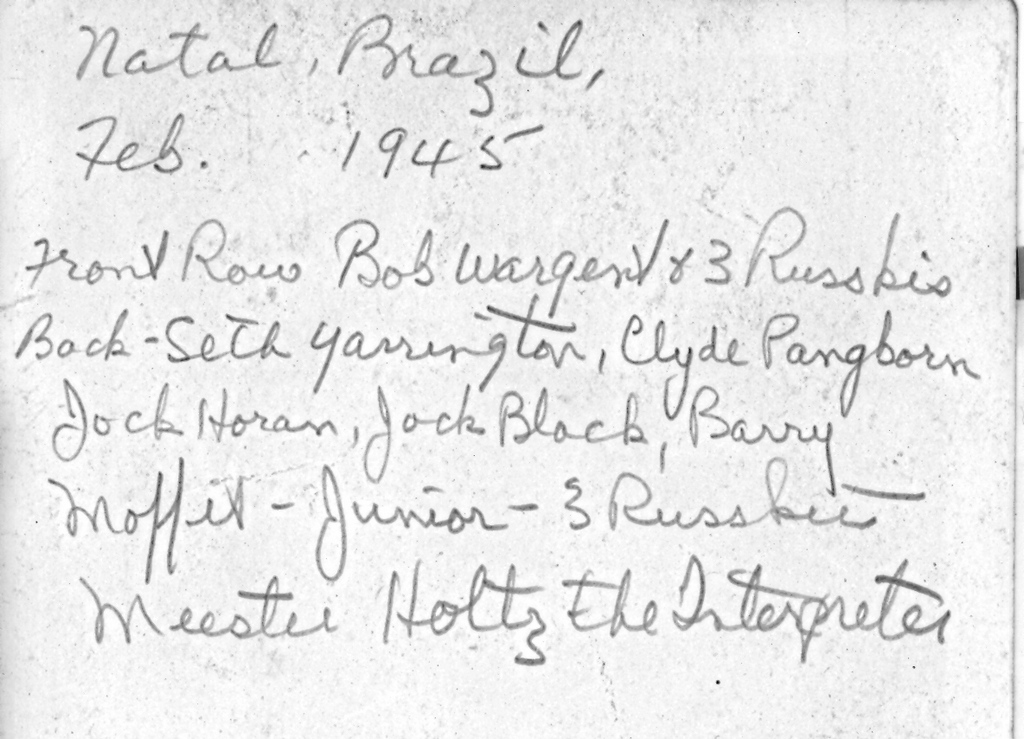 Natal, Brazil,
Feb. 1945
Front Row Bob Wargent & 3 Russkis
Back - Seth Yarrington, Clyde Pangborn
Jock Horan, Jock Black, Barry
Moffet - Junior - 3 Russkies
Meester Holtz the Interpreter